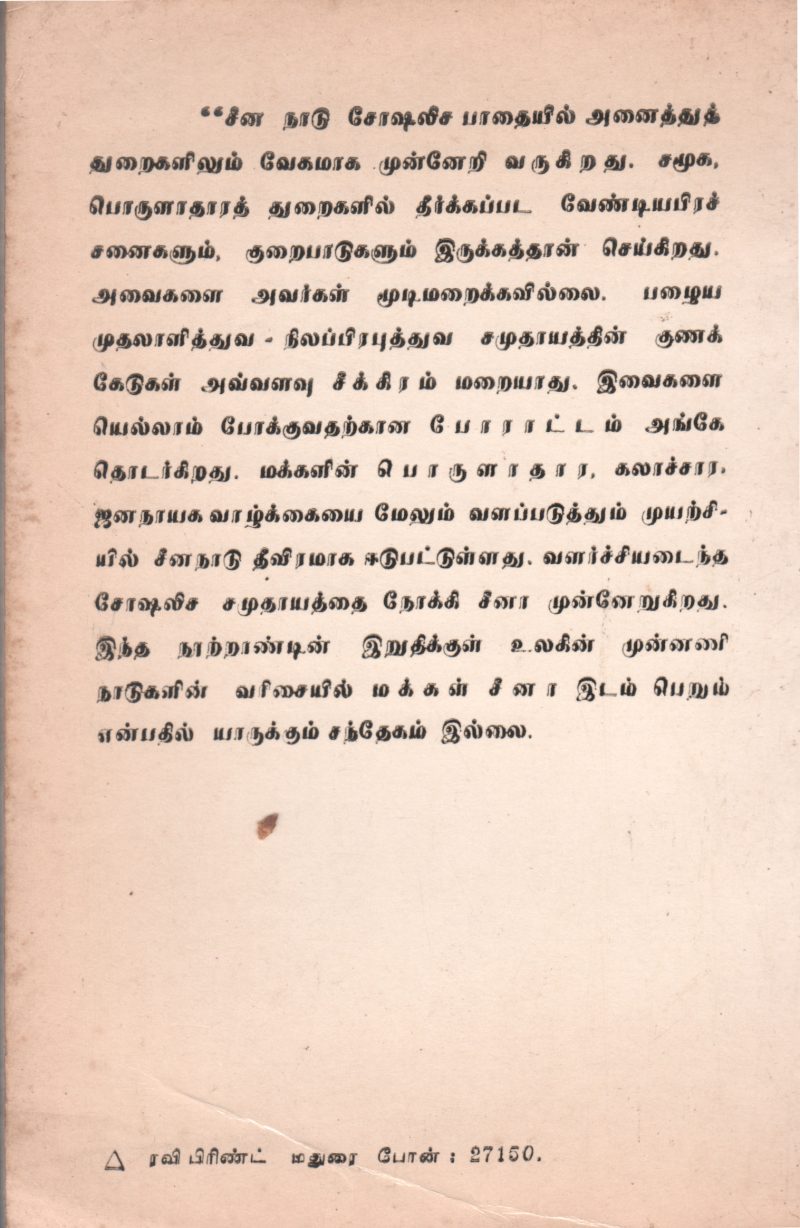 “சீன நாடு சோஷலிச பாதையில் அனைத்துத்
துறைகளிலும் வேகமாக முன்னேறி வருகிறது. சமூக,
பொருளாதாரத் துறைகளில் தீர்க்கப்பட வேண்டியபிரச்
சனைகளும், குறைபாடுகளும் இருக்கத்தான் செய்கிறது.
அவைகளை அவர்கள் மூடிமறைக்கவில்லை. பழைய
முதலாளித்துவ - நிலப்பிரபுத்துவ சமுதாயத்தின் குணக்
கேடுகள் அவ்வளவு சீக்கிரம் மறையாது. இவைகளை
யெல்லாம் போக்குவதற்கான போராட்டம் அங்கே
தொடர்கிறது. மக்களின் பொருளாதார, கலாச்சார,
ஜனநாயக வாழ்க்கையை மேலும் வளப்படுத்தும் முயற்சி-
யில் சீனநாடு தீவிரமாக ஈடுபட்டுள்ளது. வளர்ச்சியடைந்த
சோஷலிச சமுதாயத்தை நோக்கி சீனா முன்னேறுகிறது.
இந்த நூற்றாண்டின் இறுதிக்குள் உலகின் முன்னணி
நாடுகளின் வரிசையில் மக்கள் சீனா இடம் பெறும்
என்பதில் யாருக்கும் சந்தேகம் இல்லை.
△ ரவி பிரிண்ட் மதுரை போன் : 27150.